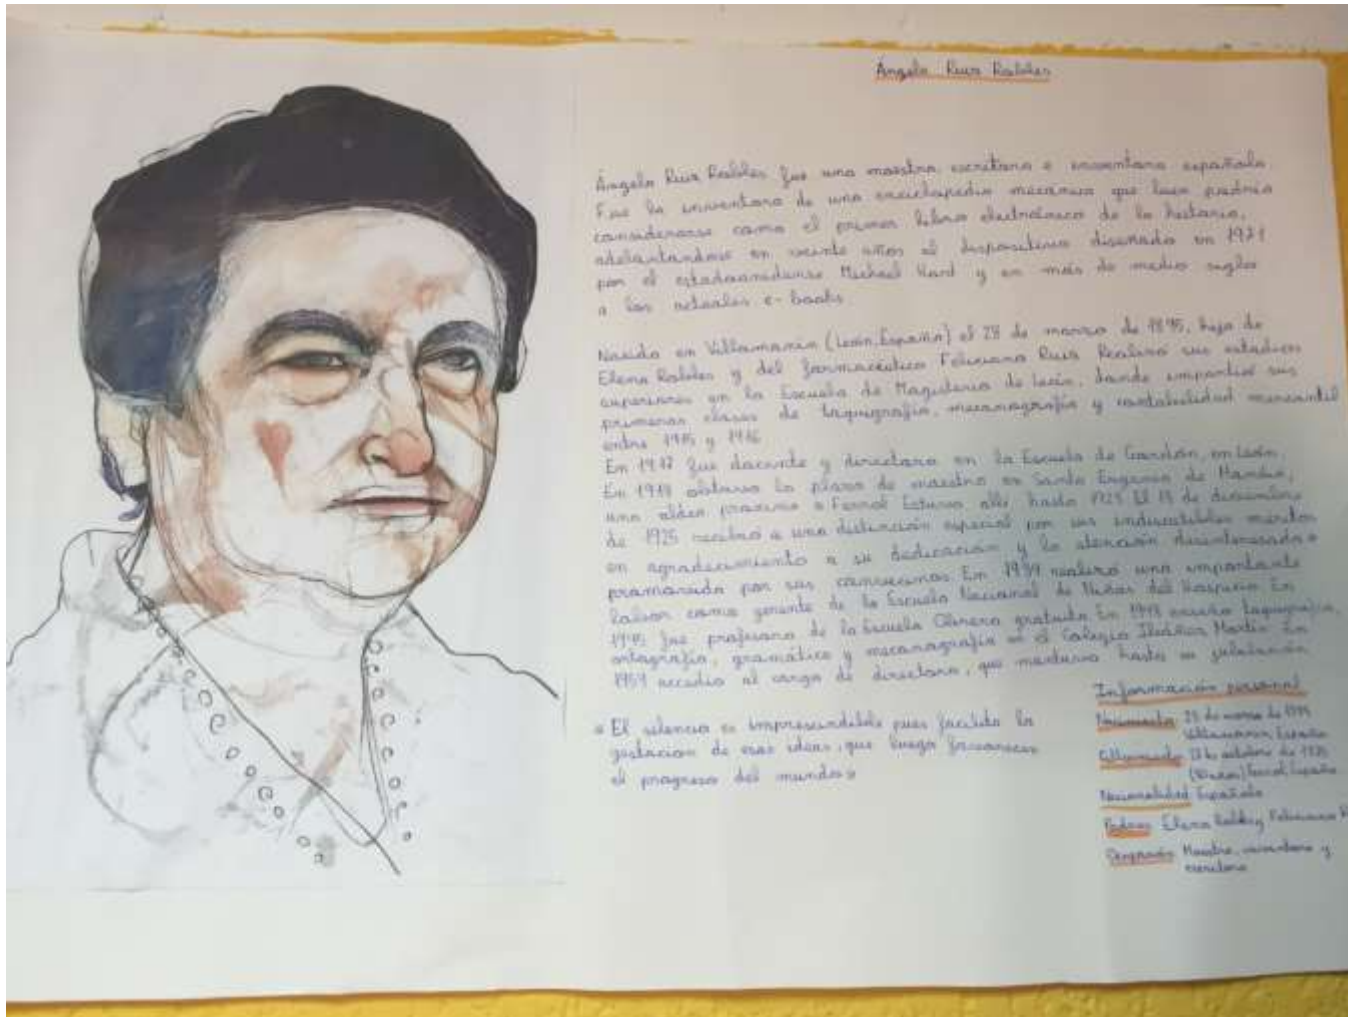 Ángela Ruiz Robles
Ángela Ruiz Robles fue una maestra, escritora e inventora española.
Fue la inventora de una enciclopedia mecánica que bien podría
considerarse como el primer libro electrónico de la historia,
adelantándose en veinte años al dispositivo diseñado en 1971
por el estadounidense Michael Hart y en más de medio siglo
a los actuales e-books
Nacida en Villamanín (León, España) el 28 de marzo de 1895, hija de
Elena Robles y del farmacéutico Feliciano Ruiz Realizó sus estudios
superiores en la Escuela de Magisterio de León, donde impartió sus
primeras clases de taquigrafía, mecanografía y contabilidad mercantil
entre 1915 y 1916
En 1917 fue docente y directora en la Escuela de Gordón, en León.
En 1918 obtuvo la plaza de maestra en Santa Eugenia de Mandiá,
una aldea próxima a Ferrol Estuvo allí hasta 1928 El de diciembre
de 1925 recibió a una distinción especial por sus indiscutibles méritos
en agradecimiento a su dedicación y la atención desinteresada
promovida por sus convecinos En 1934 realizó una importante
labor como gerente de la Escuela Nacional de Niñas del Hospicio En
1945 fue profesora de la Escuela Obrera gratuita En enseñó taquigrafía,
ortografía, gramática y mecanografía en el Colegio Ibáñez Martín En
1959 accedió al cargo de directora, que mantuvo hasta su jubilación
«El silencio es imprescindible pues facilita la
gestación de esas ideas, que luego favorecen
el progreso del mundo»
Información personal
Nacimiento 28 de marzo de 1895
Villamanín España
de octubre de 1975
(80 años) Ferrol, España
Nacionalidad Española
Padres Elena Robles y Feliciano R
Ocupación Maestra, inventora y
escritora